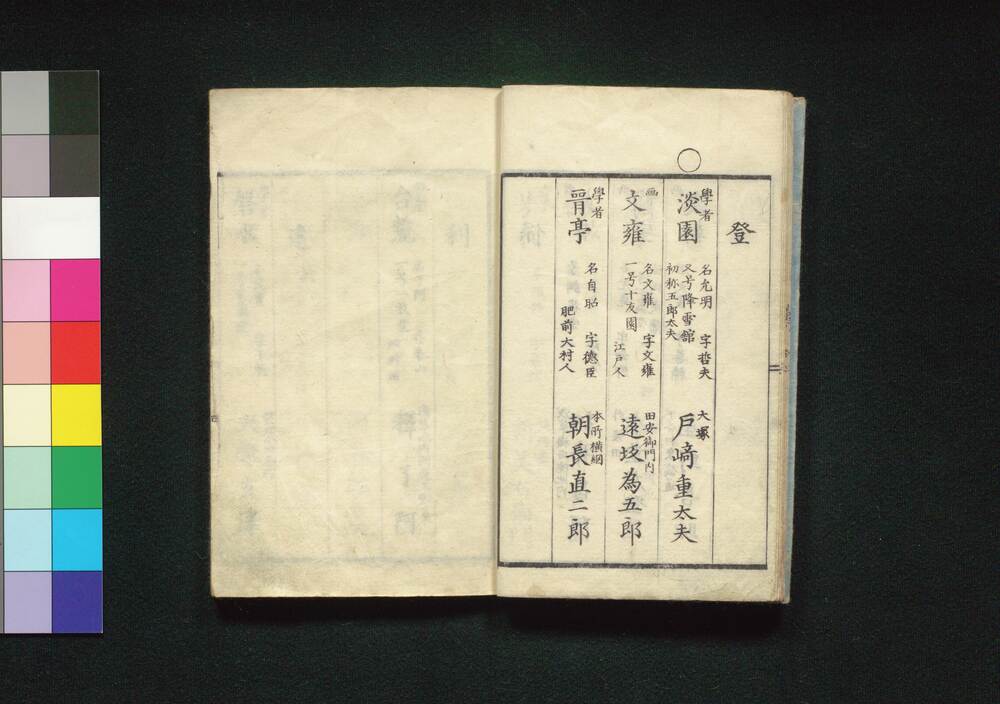 登
學者
淡園
名允明 字哲夫
又号降雪館
初称五郎太夫
大塚
戸﨑重太夫
画
文雍
名文雍 字文雍
一号十友園
江戸人
田安御門内
遠坂為五郎
學者
晋亭
名自昭 字德臣
肥前大村人
本所横網
朝長直二郎